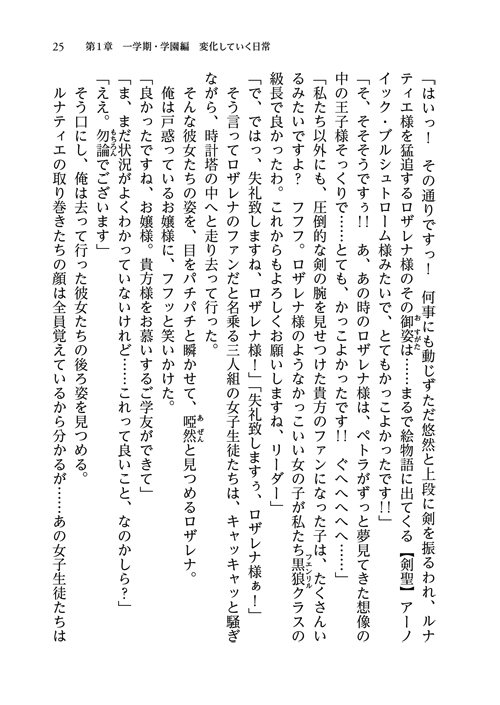 25　第1章　一学期・学園編　変化していく日常
「はいっ！　その通りですっ！　何事にも動じずただ悠然と上段に剣を振るわれ、ルナ
ティエ様を猛追するロザレナ様のその御姿は……まるで絵物語に出てくる【剣聖】アーノ
イック・ブルシュトローム様みたいで、とてもかっこよかったです!!」
「そ、そそそうですぅ!!　あ、あの時のロザレナ様は、ペトラがずっと夢見てきた想像の
中の王子様そっくりで……とても、かっこよかったです!!　ぐへへへへへ……」
「私たち以外にも、圧倒的な剣の腕を見せつけた貴方のファンになった子は、たくさんい
るみたいですよ？　フフフ。ロザレナ様のようなかっこいい女の子が私たち黒狼クラスの
級長で良かったわ。これからもよろしくお願いしますね、リーダー」
「で、ではっ、失礼致しますね、ロザレナ様！」「失礼致しますぅ、ロザレナ様ぁ！」
　そう言ってロザレナのファンだと名乗る三人組の女子生徒たちは、キャッキャッと騒ぎ
ながら、時計塔の中へと走り去って行った。
　そんな彼女たちの姿を、目をパチパチと瞬かせて、啞然と見つめるロザレナ。
　俺は戸惑っているお嬢様に、フフッと笑いかけた。
「良かったですね、お嬢様。貴方様をお慕いするご学友ができて」
「ま、まだ状況がよくわかっていないけれど……これって良いこと、なのかしら？」
「ええ。勿論でございます」
　そう口にし、俺は去って行った彼女たちの後ろ姿を見つめる。
　ルナティエの取り巻きたちの顔は全員覚えているから分かるが……あの女子生徒たちは